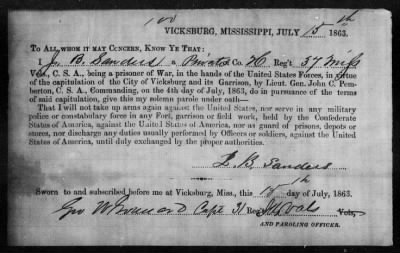 VICKSBURG, MISSISSIPPI, JULY 15th 1863.
TO ALL WHOM IT MAY CONCERN, KNOW YE THAT:
I J. B. Sanders a Private Co. H. Reg't 37 Miss
Vols., C. S. A., being a prisoner of War, in the hands of the United States Forces, in virtue
of the capitulation of the City of Vicksburg and its Garrison, by Lieut. Gen. John C. Pem-
berton, C. S. A., Commanding, on the 4th day of July, 1863, do in pursuance of the terms
of said capitulation, give this my solemn parole under oath—
That I will not take up arms again against the United States, nor serve in any military
police or constabulary force in any Fort, garrison or field work, held by the Confederate
States of America, against the United States of America, nor as guard of prisons, depots or
stores, nor discharge any duties usually performed by Officers or soldiers, against the United
States of America, until duly exchanged by the proper authorities.
J. B. Sanders
Sworn to and subscribed before me at Vicksburg, Miss., this 15th day of July, 1863.
Geo W Capt 31 Reg't Ills Vols Vols,
AND PAROLING OFFICER.